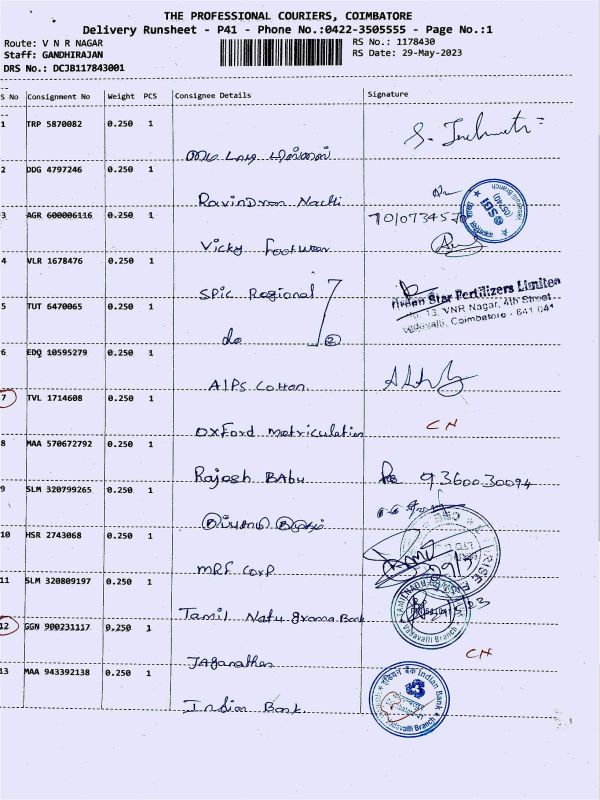 THE PROFESSIONAL COURIERS, COIMBATORE
Delivery Runsheet - P41 - Phone No.:0422-3505555 - Page No.:1
Route: V N R NAGAR
Staff: GANDHIRAJAN
DRS No.: DCJB117843001
RS No.: 1178430
RS Date: 29-May-2023
S No Consignment No Weight PCS Consignee Details Signature
1 TRP 5870082 0.250 1
2 DDG 4797246 0.250 1
Ravindran
3 AGR 600006116 0.250 1
Vicky Footwear
4 VLR 1678476 0.250 1
SPIC Regional
Star Fertilizers Limited
13, VNR Nagar, 4th Street
Coimbatore - 641 041
5 TUT 6470065 0.250 1
do
2
6 EDQ 10595279 0.250 1
AlPs Cotton
7 TVL 1714608 0.250 1
OXFord matriculation
CN
8 MAA 570672792 0.250 1
Rajesh BAbu
93600-30094
9 SLM 320799265 0.250 1
10 HSR 2743068 0.250 1
MRF Corp
11 SLM 320809197 0.250 1
Tamil Natu grama Bank
Vadavalli Branch
12 GGN 900231117 0.250 1
JAganathan
CN
13 MAA 943392138 0.250 1
Indian Bank
इंडियन बैंक Indian Bank
Vadavalli Branch